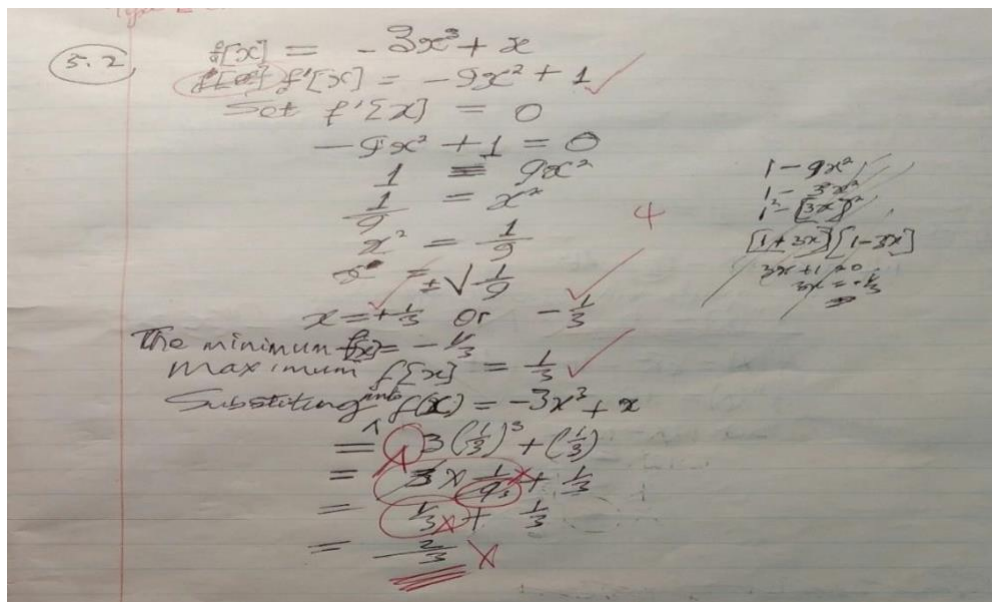 5.2
f[x] = -3x³ + x
f'[x] = -9x² + 1
Set f'[x] = 0
-9x² + 1 = 0
1 = 9x²
1/9 = x²
x² = 1/9
= ±√1/9
x = +1/3 or -1/3
4
The minimum f[x] = -1/3
maximum f[x] = 1/3
Substiting into f(x) = -3x³ + x
= 3(1/3)³ + (1/3)
= 3 × 1/9 + 1/3
= 1/3 + 1/3
= 2/3
1 - 9x²
1 - 3x²
1² - [3x]²
[1+3x][1-3x]
3x+1 = 0
3x = -1/3